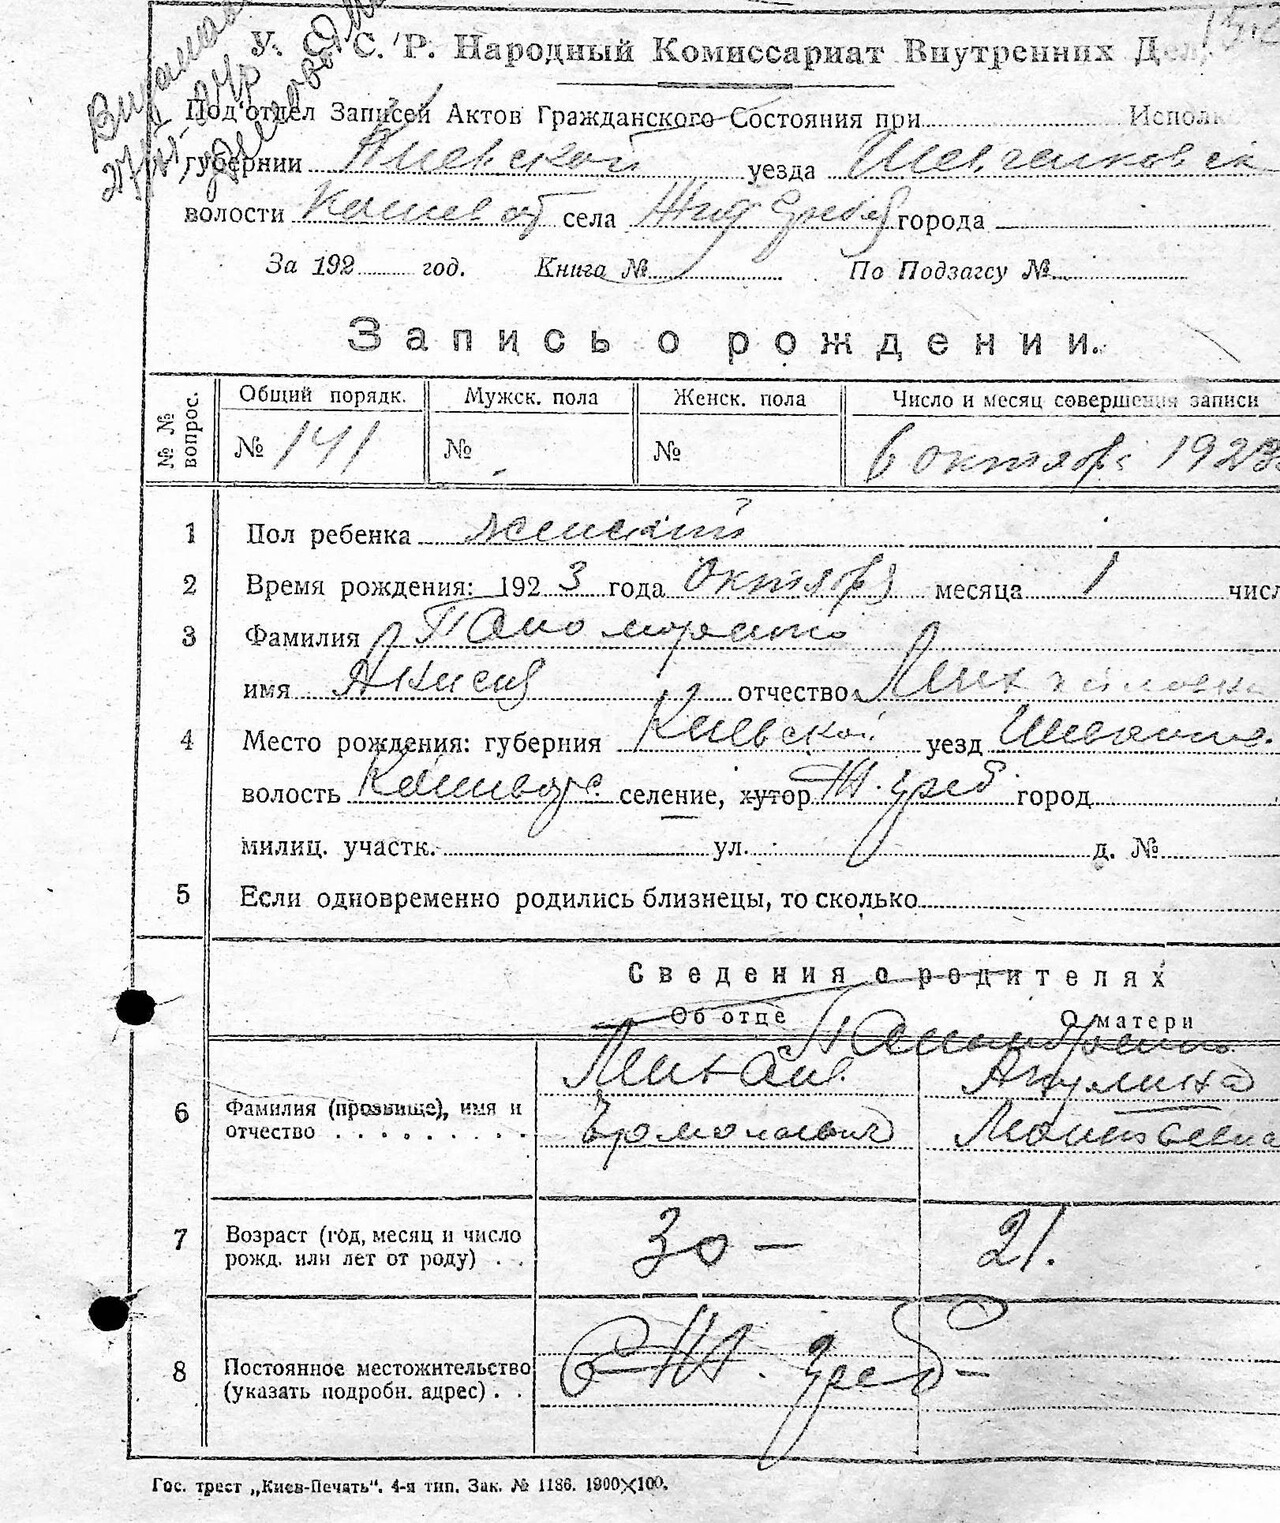 У. С. С. Р. Народный Комиссариат Внутренних Дел.
Под'отдел Записей Актов Гражданского Состояния при Исполк
губернии Киевской уезда Шевченковск
волости Кошеват села Жид Греб города
За 192 год. Книга № По Подзагсу №
Запись о рождении.
№ № вопрос.
Общий порядк. Мужск. пола Женск. пола Число и месяц совершения записи
№ 141 № № 6 октября 1923
1 Пол ребенка женский
2 Время рождения: 1923 года Октября месяца 1 числ
3 Фамилия Паномаренко
имя Анисия отчество Михайловна
4 Место рождения: губерния Киевской уезд Шевченк.
волость Кошеватс. селение, хутор Ж. Греб город
милиц. участк. ул. д. №
5 Если одновременно родились близнецы, то сколько
Сведения о родителях
Об отце О матери
Паномаренко
Михаил Акулина
6 Фамилия (прозвище), имя и
отчество Ермолаевич Моисеевна
7 Возраст (год, месяц и число
рожд. или лет от роду) 30 — 21.
8 Постоянное местожительство
(указать подробн. адрес) с Ж. Греб —
Гос. трест „Киев-Печать“. 4-я тип. Зак. № 1186. 1900×100.